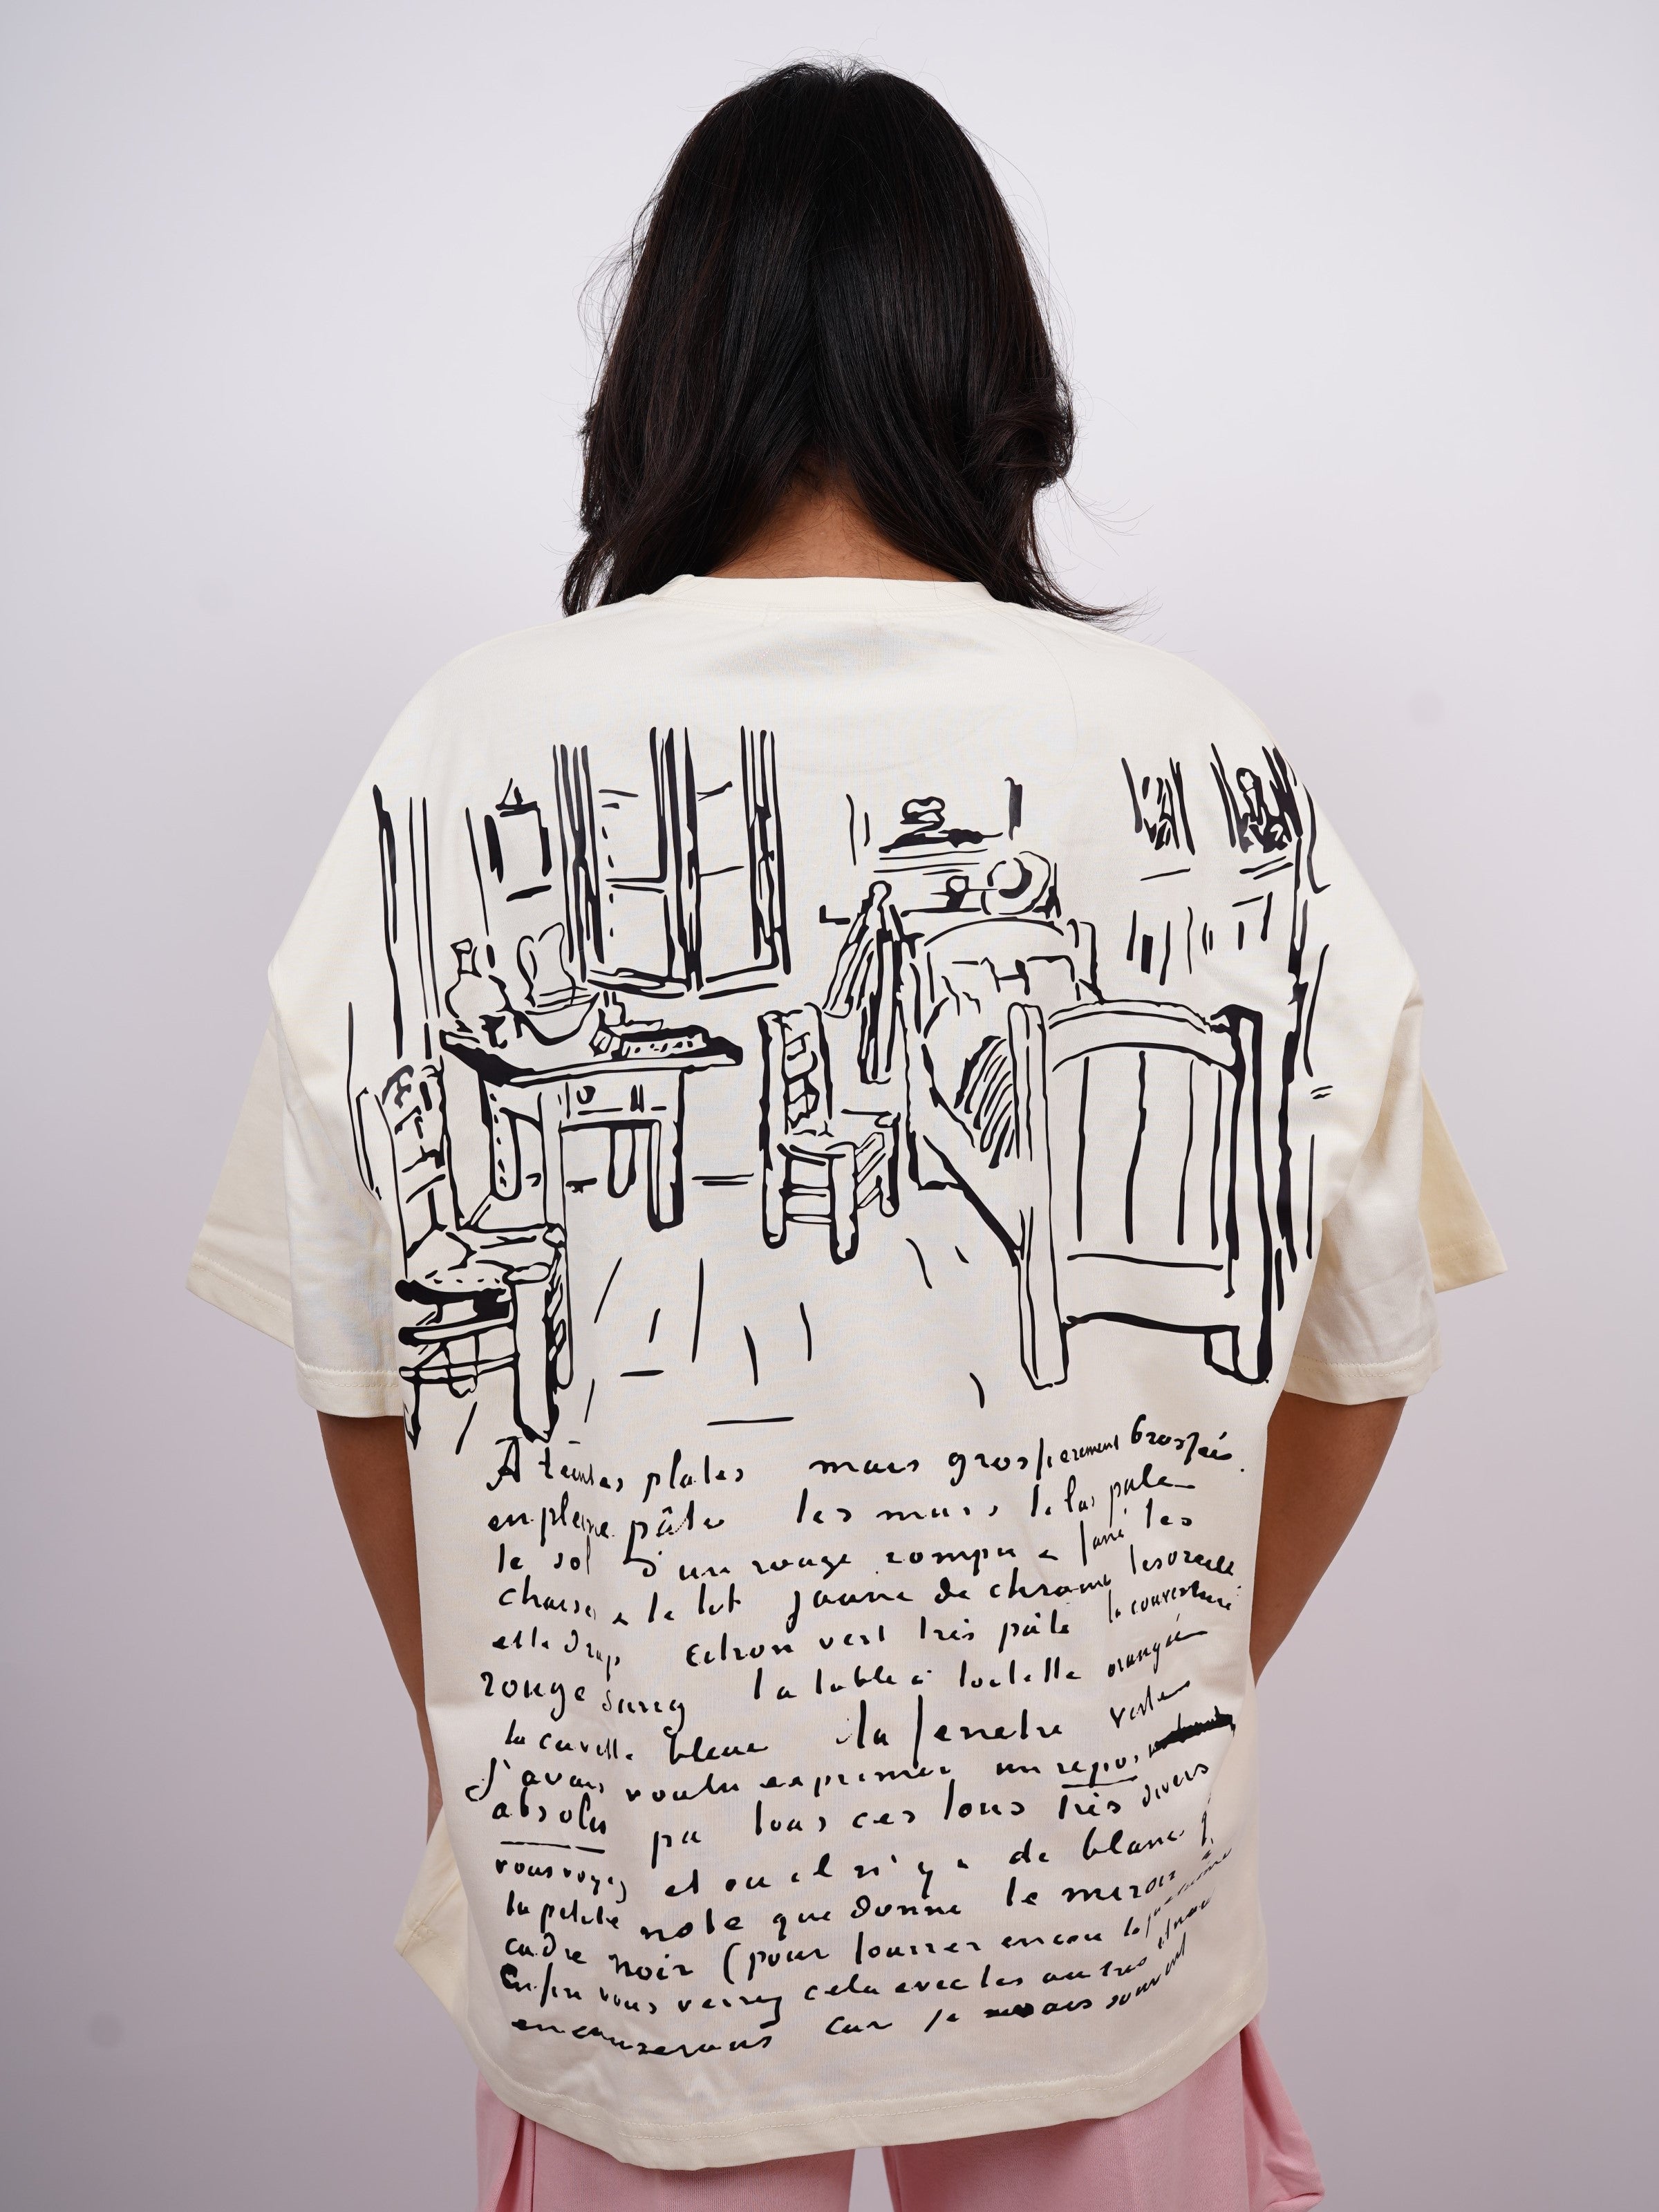 A teintes plates mais grossierement brossées
en pleine pâte les murs lilas pale
le sol d'un rouge rompu e fané les
chaises e le lit jaune de chrome les oreillers
et le drap citron vert très pâle la couverture
rouge sang la table à toilette orangée
la cuvette bleue la fenetre verte
J'avais voulu exprimer un repos
absolu par tous ces tons très divers
vous voyez et ou il n'y a de blanc q
la petite note que donne le miroir à
cadre noir (pour fourrer encore la
Enfin vous verrez cela avec les autres et nous
en causerons car je ais souvent